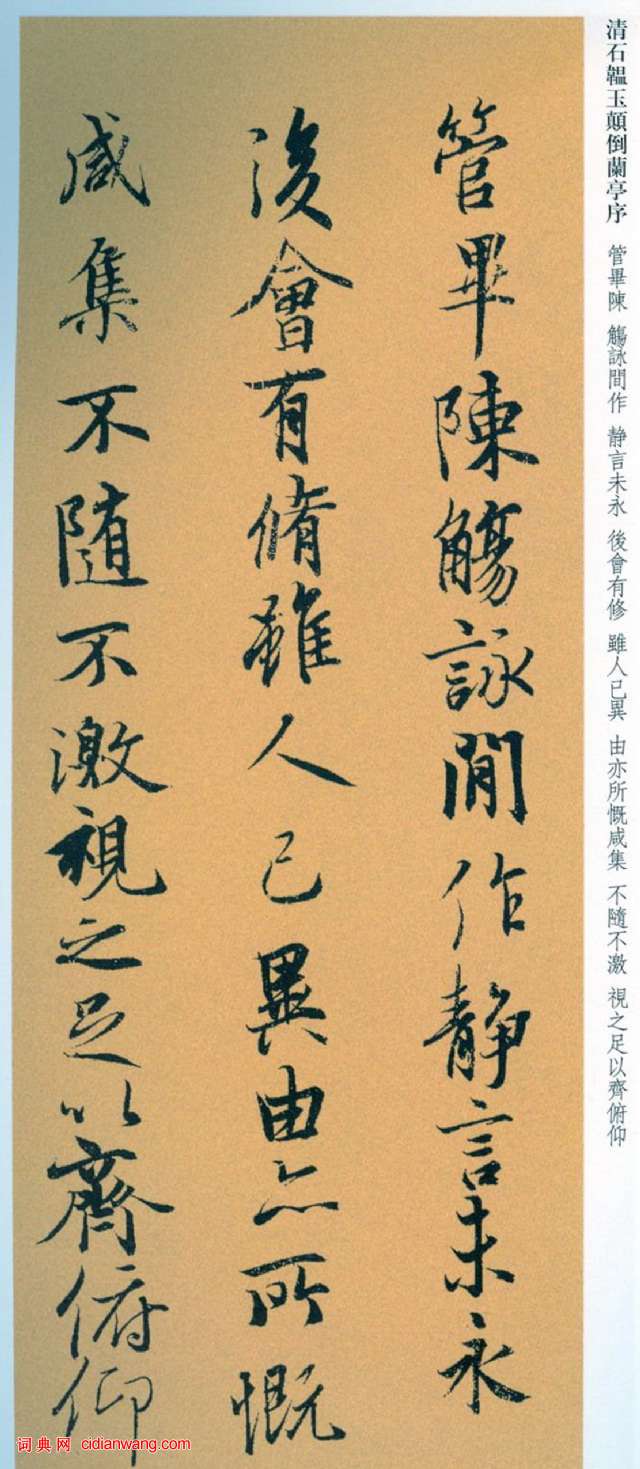 清石韞玉顛倒蘭亭序　管畢陳　觴詠間作　靜言未永　後會有修　雖人已異　由亦所慨咸集　不隨不激　視之足以齊俯仰
管畢陳觴詠間作靜言未永
後會有脩雖人已異由亦所慨
咸集不隨不激視之足以齊俯仰
词典网 cidianwang.com